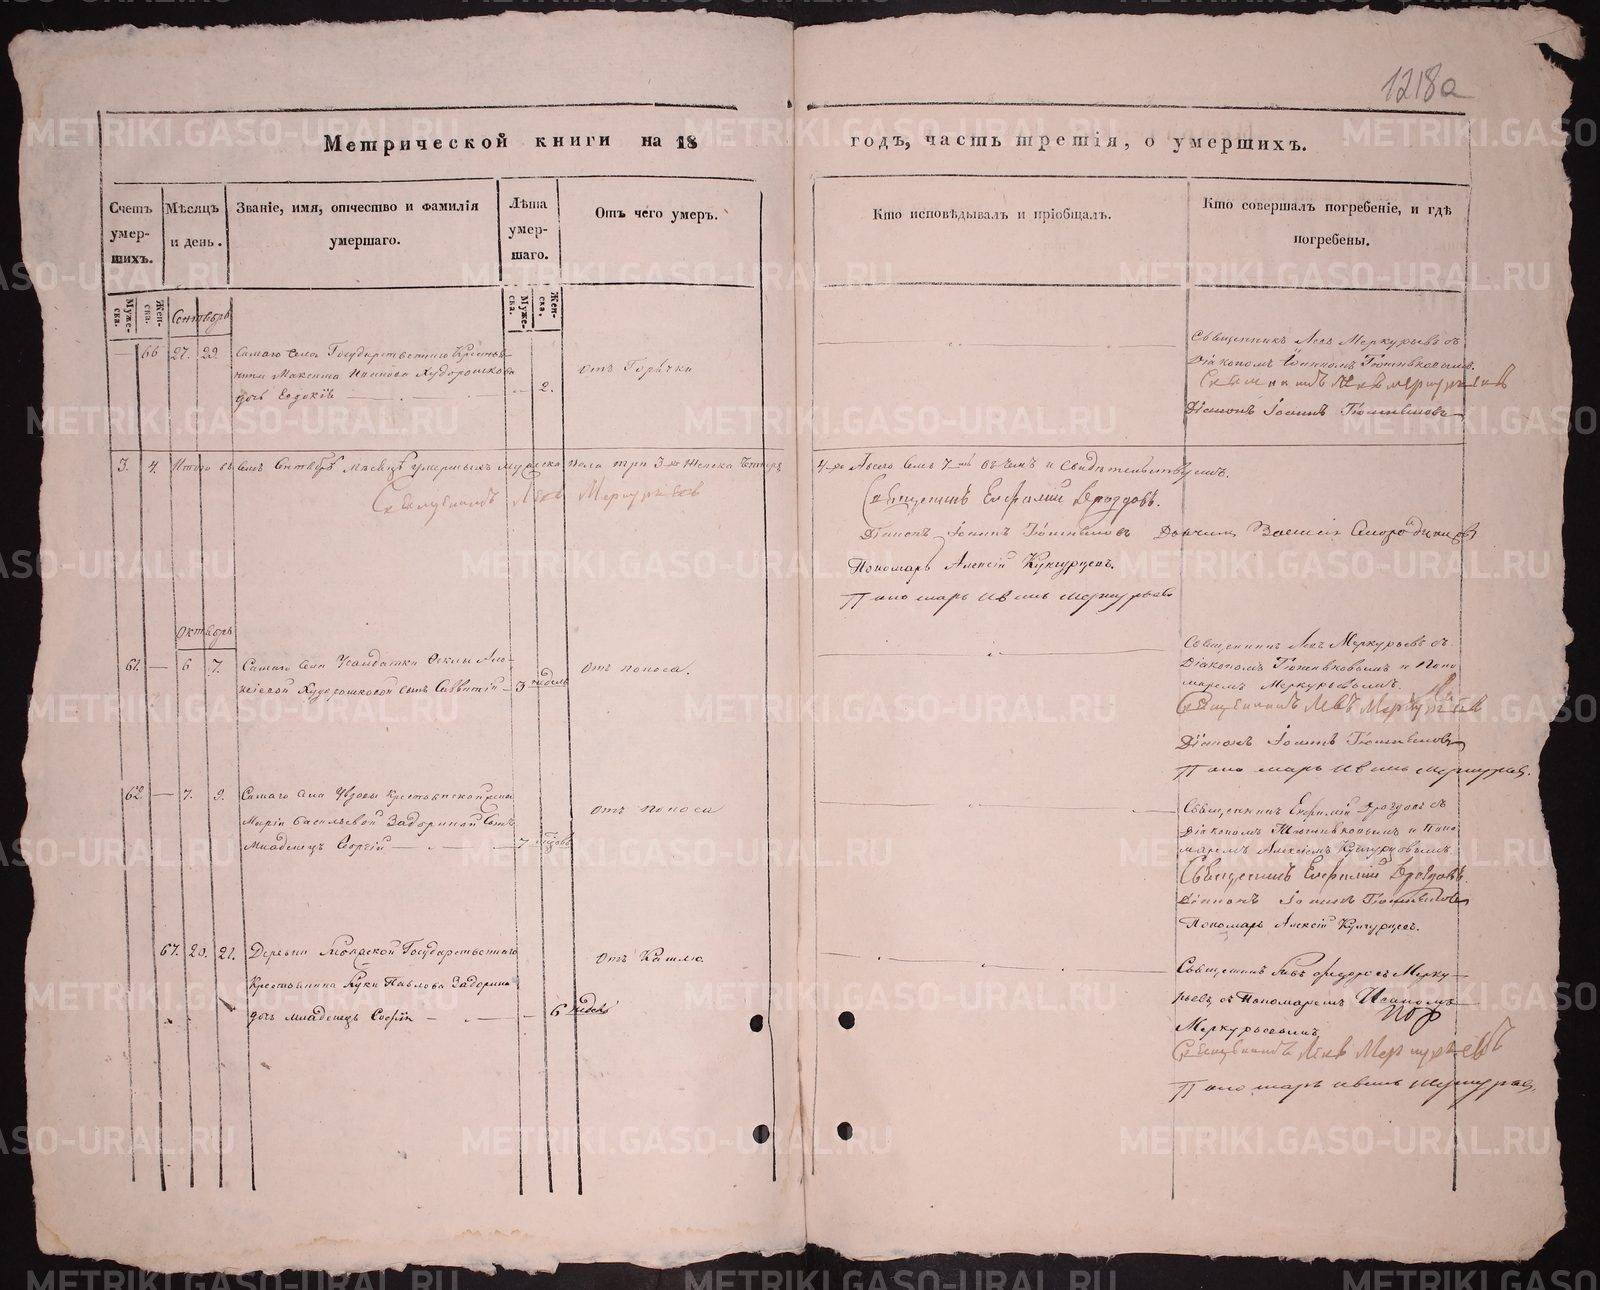 1218а
Метрической книги на 18
годъ, часть третія, о умершихъ.
Счетъ умер-шихъ.
Мѣсяцъ и день.
Званіе, имя, отчество и фамилія умершаго.
Лѣта умер-шаго.
Отъ чего умеръ.
Кто исповѣдывалъ и пріобщалъ.
Кто совершалъ погребеніе, и гдѣ погребены.
Муже-ска.
Жен-ска.
Муже-ска.
Жен-ска.
Сентябрь
66 27. 29. Самаго села Государственнаго Кресть-
янина Максима Иванова Худорошкова
дочь Евдокія
2.
отъ Горячки
Священникъ Левъ Меркурьевъ съ
Діакономъ Іоанномъ Тюшевковымъ.
Священникъ Левъ Меркурьевъ
Діаконъ Іоаннъ
3. 4. Итого въ Сентябрѣ мѣсяцѣ умершихъ мужеска пола три 3 женска четыре
4 Всего семь 7 въ чемъ и свидѣтельствуемъ.
Священникъ Левъ Меркурьевъ
Священникъ Евфимій Дроздовъ.
Діаконъ Іоаннъ
Дьячекъ Василій
Пономарь Алексій Кунгурцевъ.
Пономарь Иванъ Меркурьевъ
Октябрь
61. 6 7. Самаго села Солдатки Феклы
Худорошковой сынъ Савватій
3 недѣль
Отъ поноса.
Священникъ Левъ Меркурьевъ съ
Діакономъ Тюшевковымъ и Поно
маремъ Меркурьевымъ.
Священникъ Левъ Меркурьевъ
Діаконъ Іоаннъ
Пономарь Иванъ Меркурьевъ.
62 7. 9. Самаго села Вдовы крестьянской жены
Маріи Васильевой Задориной сынъ
Младенецъ Сергій
7
Отъ поноса
Священникъ Евфимій Дроздовъ съ
Діакономъ Тюшевковымъ и Поно
маремъ Алексіемъ Кунгурцовымъ
Священникъ Евфимій Дроздовъ.
Діаконъ Іоаннъ
Пономарь Алексій Кунгурцевъ.
67. 20. 21. Деревни Государственнаго
Крестьянина Луки Павлова Задорина
дочь младенецъ Софія
6 недѣль
Отъ Кашлю
Священникъ Левъ Федоровъ Мерку
рьевъ съ Пономаремъ Иваномъ
Меркурьевымъ
Священникъ Левъ Меркурьевъ
Пономарь Иванъ Меркурьевъ.
METRIKI.GASO-URAL.RU